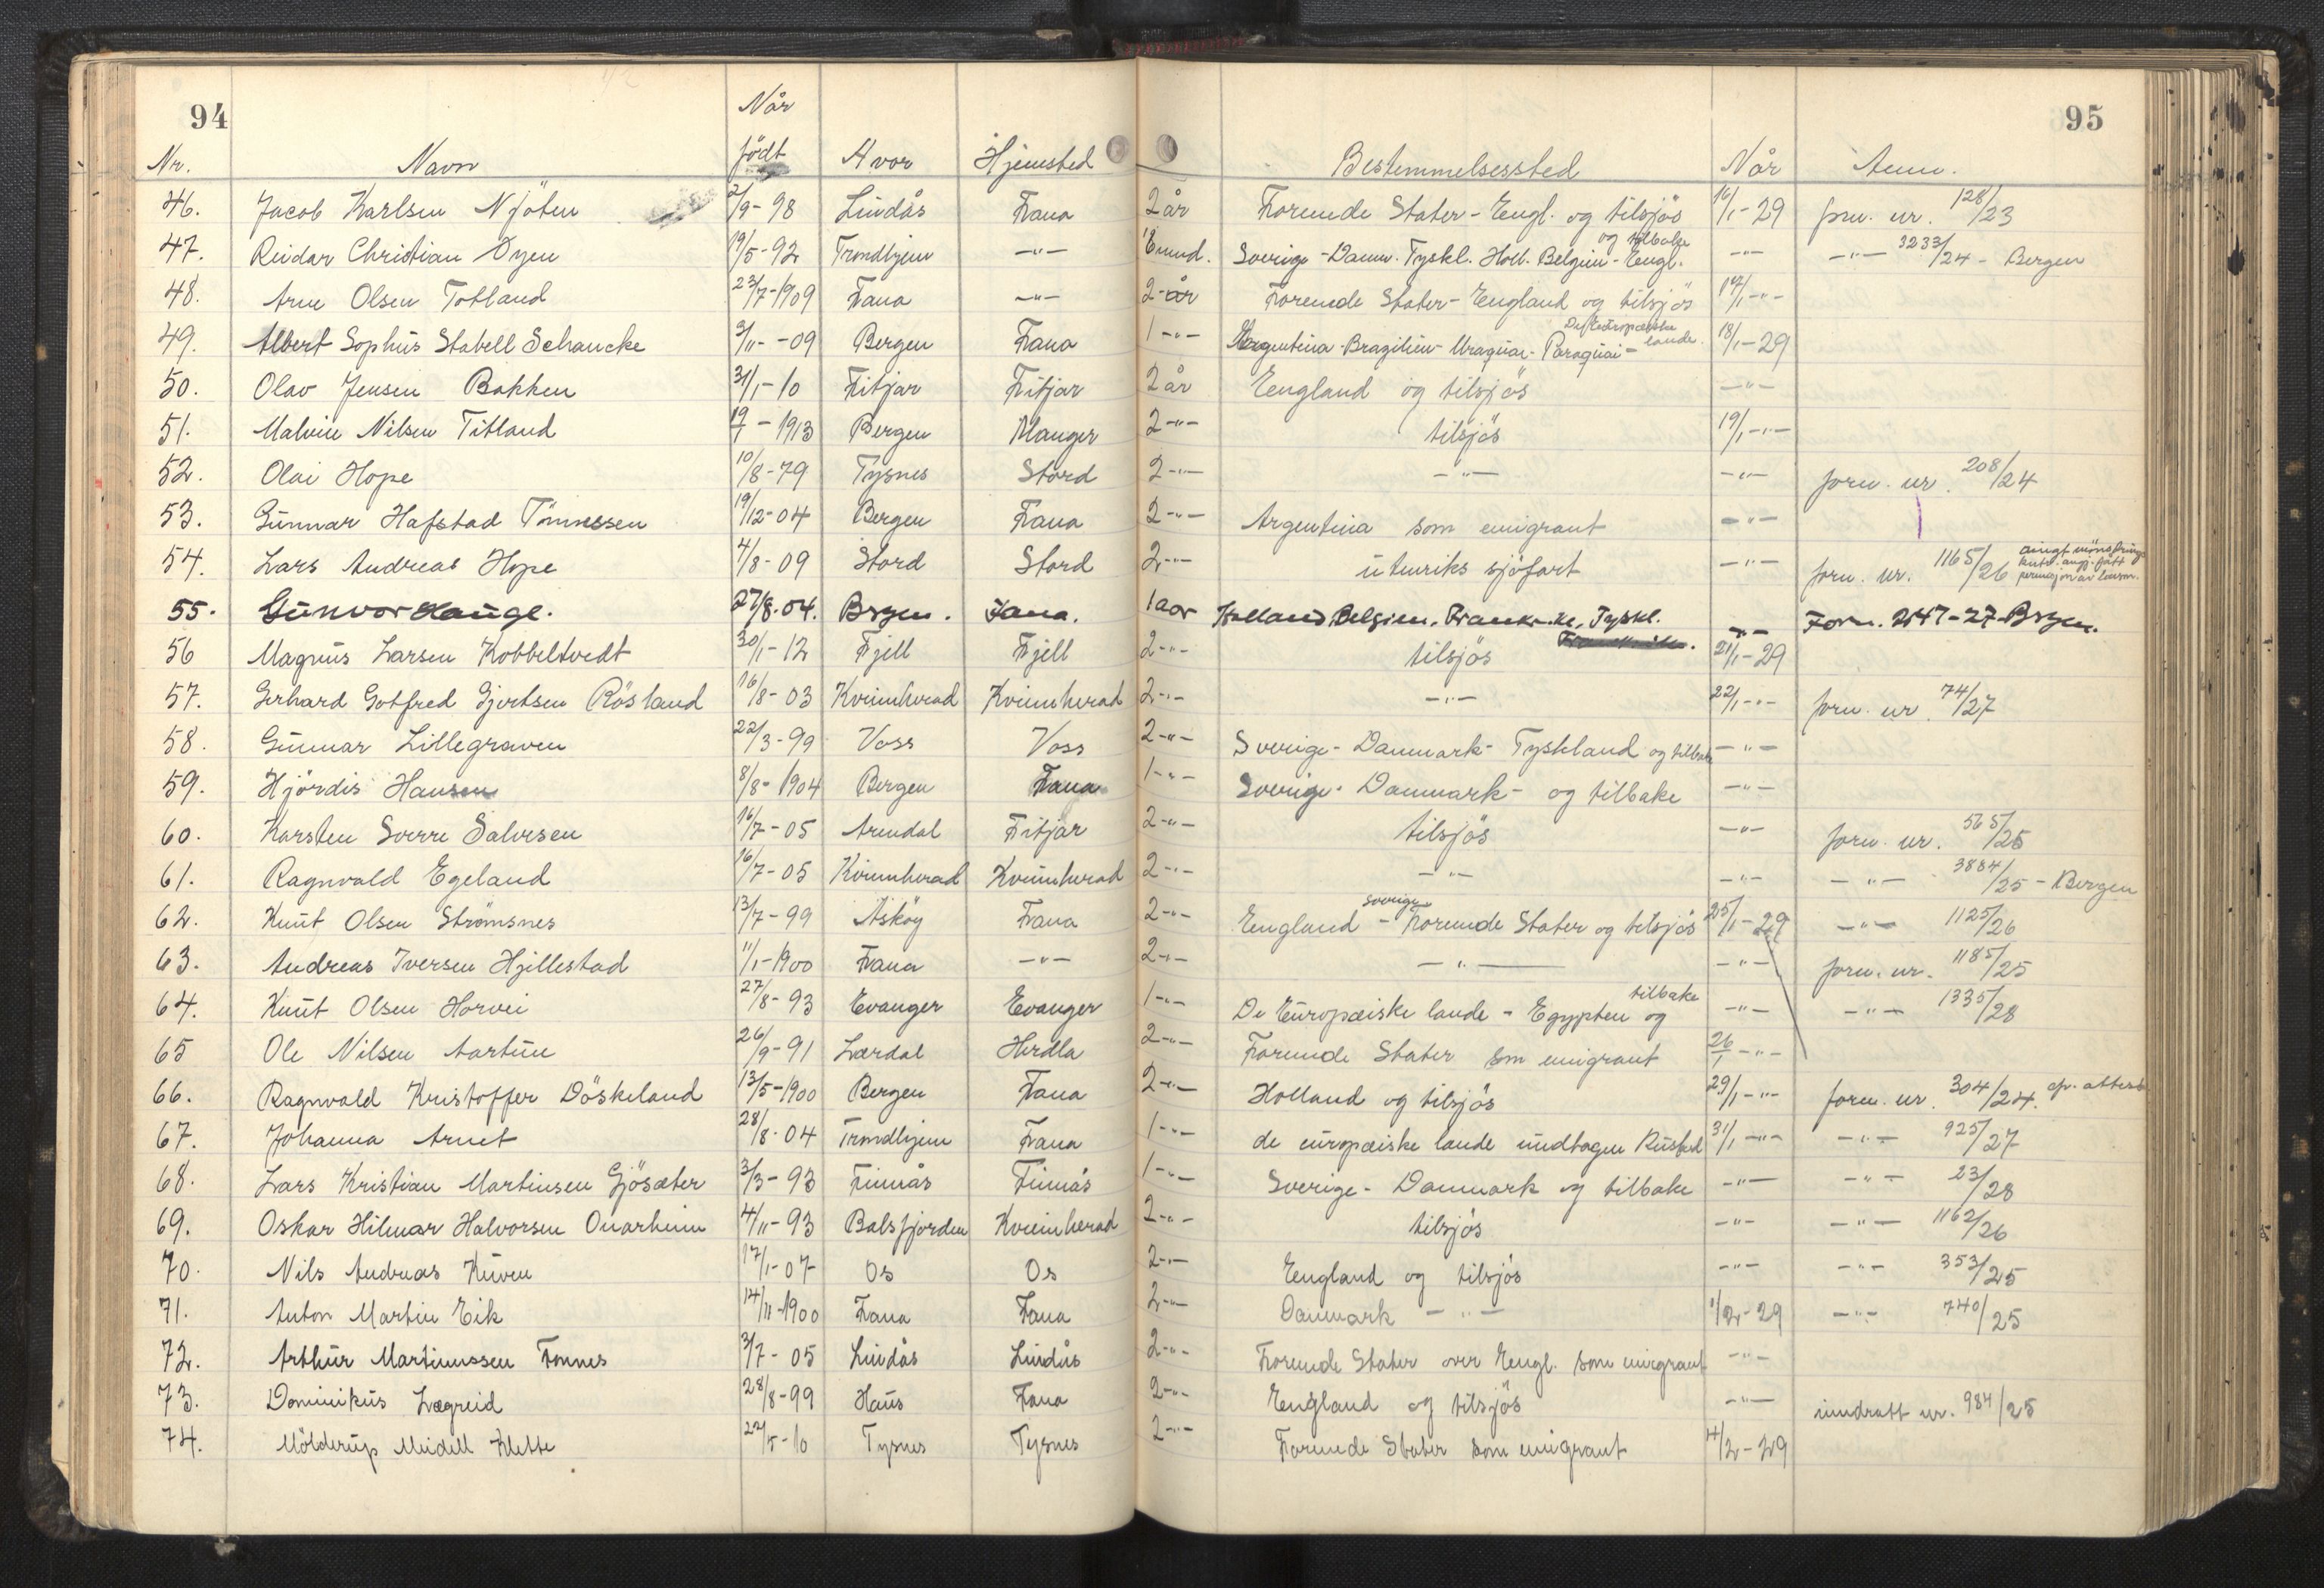 94 95
Når
Nr. Navn født Hvor Hjemsted Bestemmelsessted Når Anm.
46. Jacob Karlsen Njöten 2/9-98 Lindås Fana 2 år Forende Stater - Engl. og tilsjös 16/1-29 forn. nr. 128/23
og tilbake
47. Reidar Christian Öyen 19/5-92 Trondhjem -"- Sverige - Danm. Tyskl. Holl. Belgien - Engl. -"- -"- 3233/24 - Bergen
48. Arne Olsen Totland 23/7-1909 Fana -"- 2-år Forende Stater - England og tilsjös 17/1-"-
De Europæiske
49. Albert Sophus Stabell Schancke 3/11--09 Bergen Fana 1-"- Argentina - Brazilien - Uraguai - Paraguai - lande. 18/1-29
50. Olav Jensen Bakken 31/1-10 Fitjar Fitjar 2 år England og tilsjös -"-
51. Malvin Nilsen Titland 19/1-1913 Bergen Manger 2-"- tilsjös 19/1-"-
52. Olai Hope 10/8-79 Tysnes Stord 2-"- -"- -"- forn. nr. 208/24
53. Gunnar Hafstad Tönnessen 19/12-04 Bergen Fana 2-"- Argentina som emigrant -"-
54. Lars Andreas Hope 4/8-09 Stord Stord 2-"- utenriks sjöfart -"- forn. nr. 1165/26
55. Gunvor Hauge. 27/8.04. Bergen. Fana. 1 aar Holland, Belgien, Frankrike, Tyskl. -"- Forn. 2147-27-Bergen.
56 Magnus Larsen Kobbeltvedt 30/1-12 Fjell Fjell 2-"- tilsjös 21/1-29
57. Gerhard Gotfred Gjertsen Rösland 16/8-03 Kvinnherad Kvinnherad 2-"- -"- 22/1-"- forn. nr. 74/27
58. Gunnar Lillegraven 22/3-99 Voss Voss 2-"- Sverige - Danmark - Tyskland og tilbake -"-
59. Hjördis Hansen 8/8-1904 Bergen Fana 1-"- Sverige - Danmark - og tilbake -"-
60. Karsten Sverre Salvesen 16/7-05 Arendal Fitjar 2-"- tilsjös -"- forn. nr. 565/25
61. Ragnvald Egeland 16/7-05 Kvinnherad Kvinnherad 2-"- -"- -"- -"- 3884/25 - Bergen
Sverige
62. Knut Olsen Strömsnes 13/7-99 Asköy Fana 2-"- England - Forende Stater og tilsjös 25/1-29 -"- 1125/26
63. Andreas Iversen Hjellestad 11/1-1900 Fana -"- 2-"- -"- -"- forn. nr. 1185/25
tilbake
64. Knut Olsen Horvei 27/8-93 Evanger Evanger 1-"- De Europæiske lande - Egypten og -"- -"- 1335/28
65 Ole Nilsen Aartun 26/9-91 Lærdal Herdla 2-"- Forende Stater som emigrant 26/1-"-
66. Ragnvald Kristoffer Döskeland 13/5-1900 Bergen Fana 2-"- Holland og tilsjös 29/1-"- forn. nr. 304/24. attest
67. Johanna Arnet 28/8-04 Trondhjem Fana 1-"- de europæiske lande undtagen Rusland 31/1-"- -"- 925/27
68. Lars Kristian Martinsen Gjösæter 3/3-93 Finnås Finnås 1-"- Sverige - Danmark og tilbake -"- -"- 23/28
69. Oskar Hilmar Halvorsen Onarheim 4/11-93 Balsfjorden Kvinnherad 2-"- tilsjös -"- -"- 1162/26
70. Nils Andreas Kuven 17/1-07 Os Os 2-"- England og tilsjös -"- -"- 353/25
71. Anton Martin Eik 14/11-1900 Fana Fana 2-"- Danmark -"- 1/2-29 -"- 740/25
72. Arthur Martinussen Fonnes 3/7-05 Lindås Lindås 2-"- Forende Stater over Engl. som emigrant -"-
73. Dominikus Lægreid 28/8-99 Haus Fana 2-"- England og tilsjös -"- inndratt nr. 984/25
74. Mölderup Meidell Klette 22/5-10 Tysnes Tysnes 2-"- Forende Stater som emigrant 4/2-29